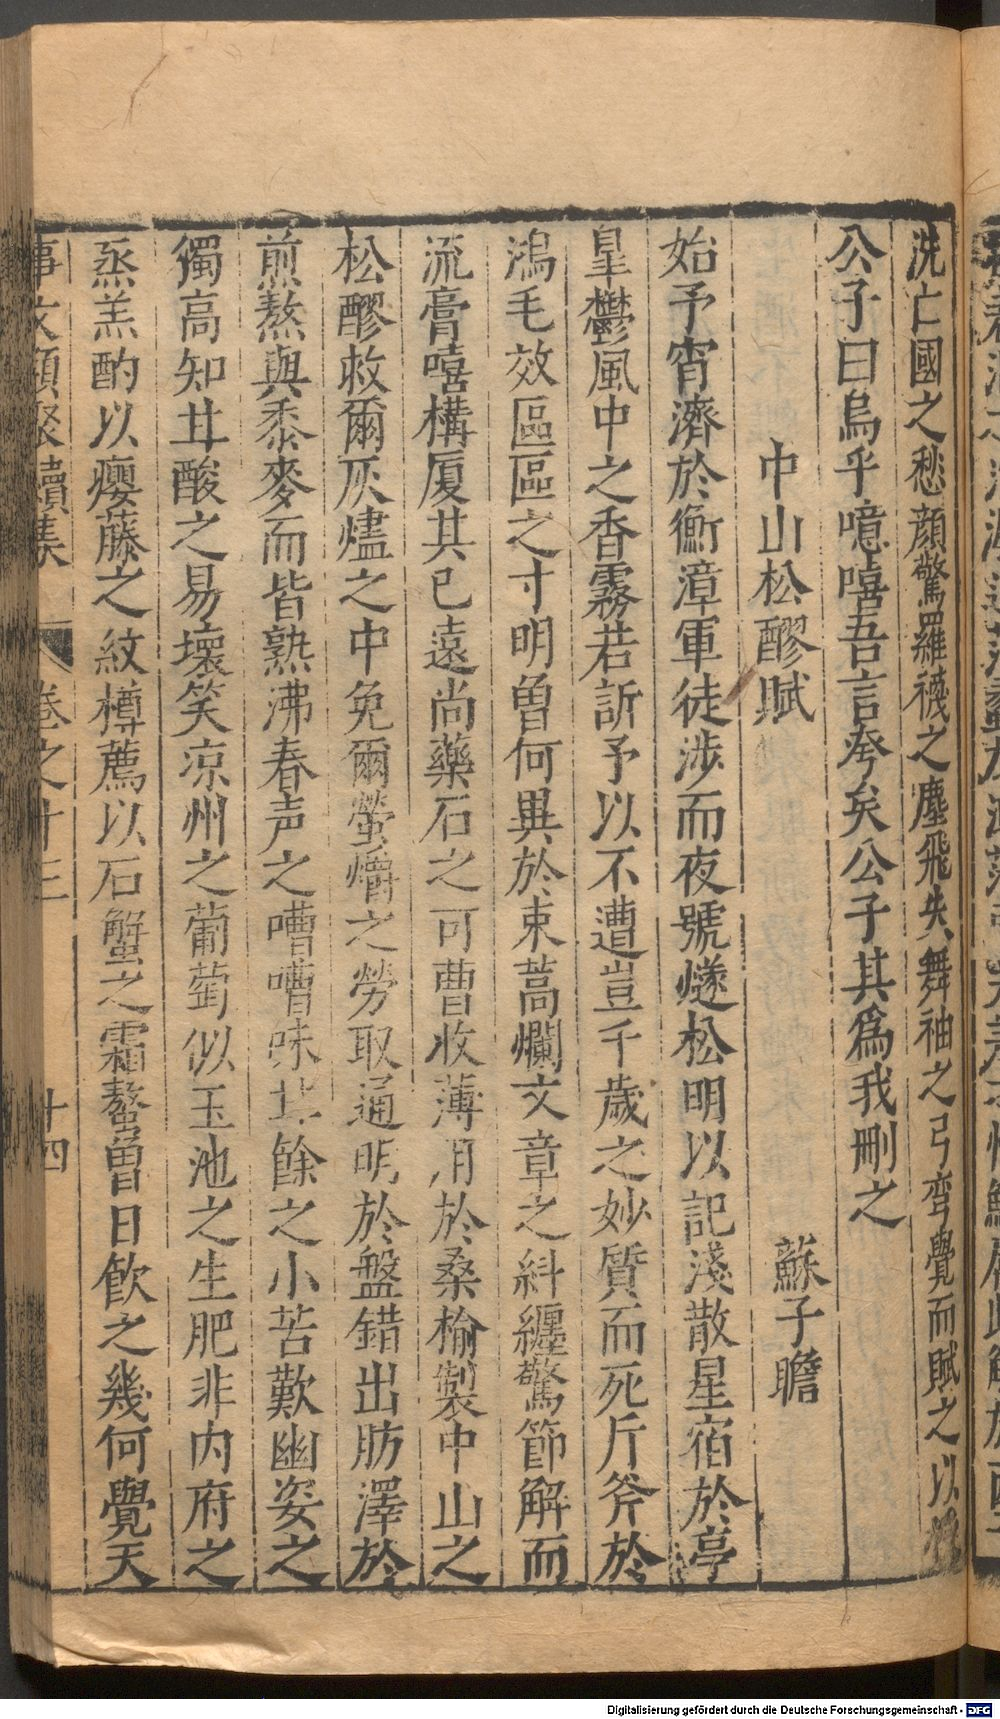 洗亡國之愁顔驚羅襪之塵飛失舞袖之弓弯覺而賦之以
公子曰烏乎噫嘻吾言夸矣公子其爲我刪之
中山松醪賦 蘇子瞻
始予宵濟於衡漳軍徒涉而夜號燧松明以記淺散星宿於亭
皐鬱風中之香霧若訴予以不遭豈千歲之妙質而死斤斧於
鴻毛效區區之寸明曽何異於束蒿爛文章之糾纏驚節解而
流膏嘻構厦其已遠尚藥石之可曹收薄用於桑榆製中山之
松醪救爾灰燼之中免爾螢爝之勞取通明於盤錯出肪澤於
煎熬與黍麥而皆熟沸春声之嘈嘈味甘餘之小苦歎幽姿之
獨高知甘酸之易壞笑凉州之葡萄似玉池之生肥非内府之
烝羔酌以癭藤之紋樽薦以石蟹之霜螯曽日飲之幾何覺天
事文類聚續集 卷之十三 十四
Digitalisierung gefördert durch die Deutsche Forschungsgemeinschaft - DFG